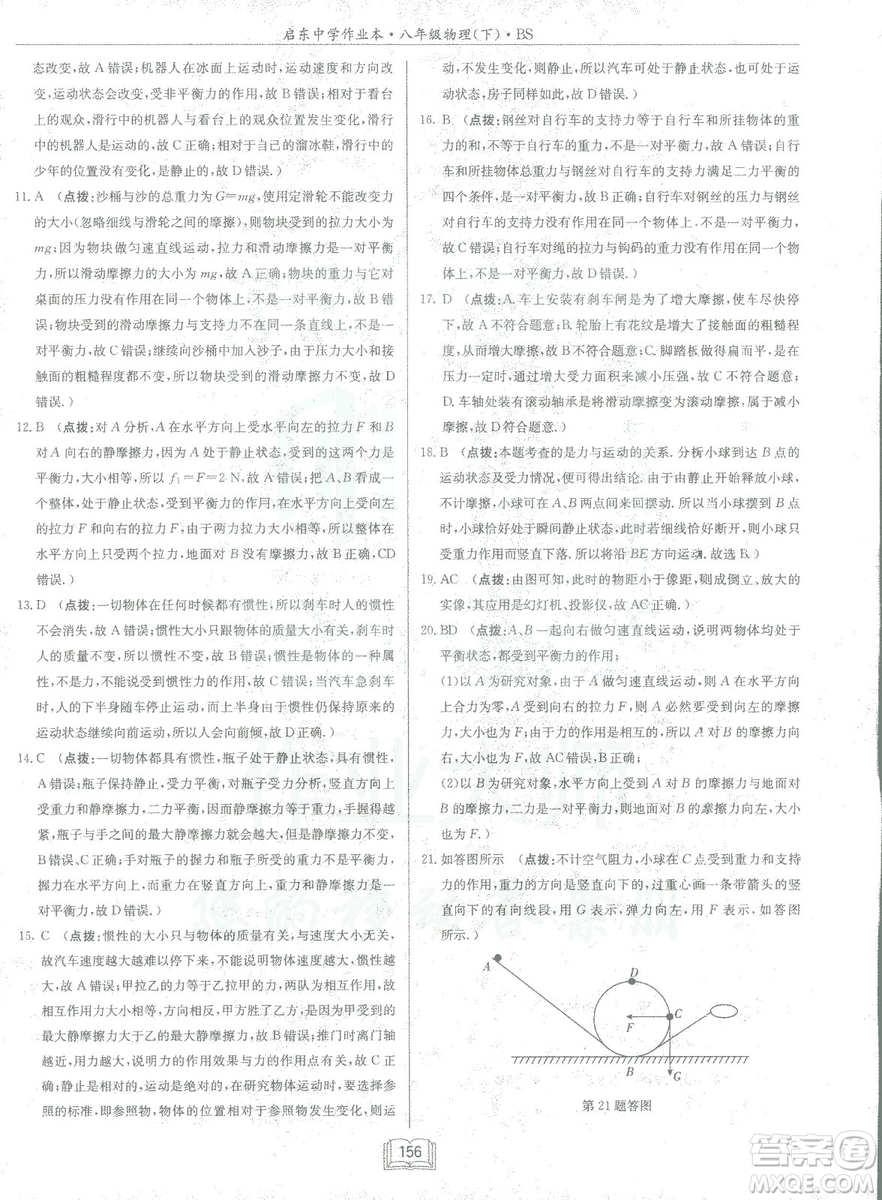 启东中学作业本·八年级物理(下)·BS
态改变,故 A 错误;机器人在冰面上运动时,运动速度和方向改
变,运动状态会改变,受非平衡力的作用,故 B 错误;相对于看台
上的观众,滑行中的机器人与看台上的观众位置发生变化,滑行
中的机器人是运动的,故 C 正确;相对于自己的溜冰鞋,滑行中的
少年的位置没有变化,是静止的,故 D 错误。)
11. A (点拨:沙桶与沙的总重力为 G=mg,使用定滑轮不能改变力
的大小(忽略细线与滑轮之间的摩擦),则物块受到的拉力大小为
mg;因为物块做匀速直线运动,拉力和滑动摩擦力是一对平衡
力,所以滑动摩擦力的大小为 mg,故 A 正确;物块的重力与它对
桌面的压力没有作用在同一个物体上,不是一对平衡力,故 B 错
误;物块受到的滑动摩擦力与支持力不在同一条直线上,不是一
对平衡力,故 C 错误;继续向沙桶中加入沙子,物块对桌面压力和接
触面的粗糙程度都不变,所以物块受到的滑动摩擦力不变,故 D
错误。)
12. B (点拨:对 A 分析,A 在水平方向上受水平向左的拉力 F 和B
对 A 向右的静摩擦力,因为 A 处于静止状态,所以受到的这两个力是
平衡力,大小相等,所以 f₁=F=2 N,故 A 错误;把 A、B 看成一
个整体,处于静止状态,所受平衡力的作用,在水平方向上受向左
的拉力 F 和地面的摩擦力,由于两力与拉力大小相等,所以整体在
水平方向上只受两个拉力,地面对 B 没有摩擦力,故 B 正确,CD
错误。)
13. D (点拨:一切物体在任何时候都有惯性,所以刹车时人的惯性
不会消失,故 A 错误;惯性大小只跟物体的质量大小有关,刹车时
人的质量不变,所以惯性不变,故 B 错误;惯性是物体的一种属
性,不是力,不能说受到惯性力的作用,故 C 错误;当汽车急刹车
时,人的下半身随车停止运动,而上半身由于惯性仍保持原来的
运动状态继续向前运动,所以人会向前倾,故 D 正确。)
14. C (点拨:一切物体都具有惯性,瓶子处于静止状态,具有惯性,
A 错误;瓶子保持静止,受平衡力,对瓶子受力分析,竖直方向上
受重力和静摩擦力,静摩擦力与重力相等,大小不变,手握得越
紧,瓶子与手之间的最大静摩擦力就会越大,但静摩擦力不变,
B 错误,C 正确;手对瓶子的握力和瓶子所受重力不是平衡力,因
为握力在水平方向,而重力在竖直方向上,与瓶子的重力平衡的
力是静摩擦力,故 D 错误。)
15. C (点拨:惯性的大小只与物体的质量有关,与速度大小无关,
故汽车速度越大越难以停下来,不能说明速度越大,惯性越大,
A 错误;甲拉乙的力与乙拉甲的力是一对相互作用力,大小相等,
甲队与乙队拔河,甲方胜了乙方,是因为甲受到的
最大静摩擦力大于乙的最大静摩擦力,故 B 错误;推门时离门轴
越近,用力越大,说明力的作用效果与力的作用点有关,故 C 正
确;静止是相对的,运动是绝对的,所以静止的物体相对于运动的
物体,即参照物,物体与参照物发生了位置变化,是运动的,运
动,不发生变化,则静止,所以汽车可处于静止状态,也可处于运
动状态,房子同样如此,故 D 错误。)
16. B (点拨:钢丝对自行车的支持力等于自行车和所挂物体的重力
的和,不是一对平衡力,故 A 错误;自行车(包括自行车上的人)
和所挂物体的总重力与钢丝对自行车的支持力满足二力平衡的
四个条件,是一对平衡力,故 B 正确;自行车对钢丝的压力与钢丝
对自行车的支持力没有作用在同一个物体上,不是一对平衡力,
故 C 错误;自行车对绳的拉力与钩码的重力方向相同,且没有作
用在同一个物体上,不是一对平衡力,故 D 错误。)
17. D (点拨:A. 车上安装有刹车闸是为了增大摩擦,使车尽快停
下,故 A 不符合题意;B. 轮胎上有花纹是增大了接触面的粗糙程
度,从而增大摩擦,故 B 不符合题意;C. 脚踏板做得扁而平,是在
压力一定时,通过增大受力面积来减小压强,故 C 不符合题意;
D. 车轴处装有滚动轴承是用滚动摩擦变滑动摩擦,属于减小
摩擦,故 D 符合题意。)
18. B (点拨:本题考查的是力与运动的关系. 分析小球到达 B 点的
运动状态及受力情况,便可得出结论. 由于由静止开始释放小球,
不计摩擦,小球可在 A、B 两点间来回摆动. 所以当小球运动至 B
点时,小球恰好处于瞬间静止状态,此时若细线恰好断开,则小球只
受重力作用而竖直下落. 所以将沿 BE 方向运动. 故选 B.)
19. AC (点拨:由图可知,此时的物距小于像距,则成倒立、放大的
实像,其应用是幻灯机、投影仪,故 AC 正确。)
20. BD (点拨:A、B 一起向右做匀速直线运动,说明两物体均处于
平衡状态,都受到平衡力的作用;
(1)以 A 为研究对象,由于 A 做匀速直线运动,则 A 在水平方向
上合力为零,A 受到向右的拉力 F,所以 A 必然要受到 B 的摩擦力,
大小也为 F;由于力的作用是相互的,所以 A 对 B 的摩擦力向右,
大小也为 F. 故 AC 错误,B 正确;
(2)以 B 为研究对象,水平方向上受到 A 对 B 的摩擦力与地面
对 B 的摩擦力,二力是一对平衡力,则地面对 B 的摩擦力向左,大小
也为 F,故 D 正确。)
21. 如答图所示 (点拨:不计空气阻力,小球在 C 点受到重力和支持
力的作用,重力的方向是竖直向下的,过重心画一条带箭头的竖
直向下的有向线段,用 G 表示,弹力方向向左,用 F 表示,如答图
所示.)
A
D
C
F
B
G
第 21 题答图
156
答案圈
MXQE.COM